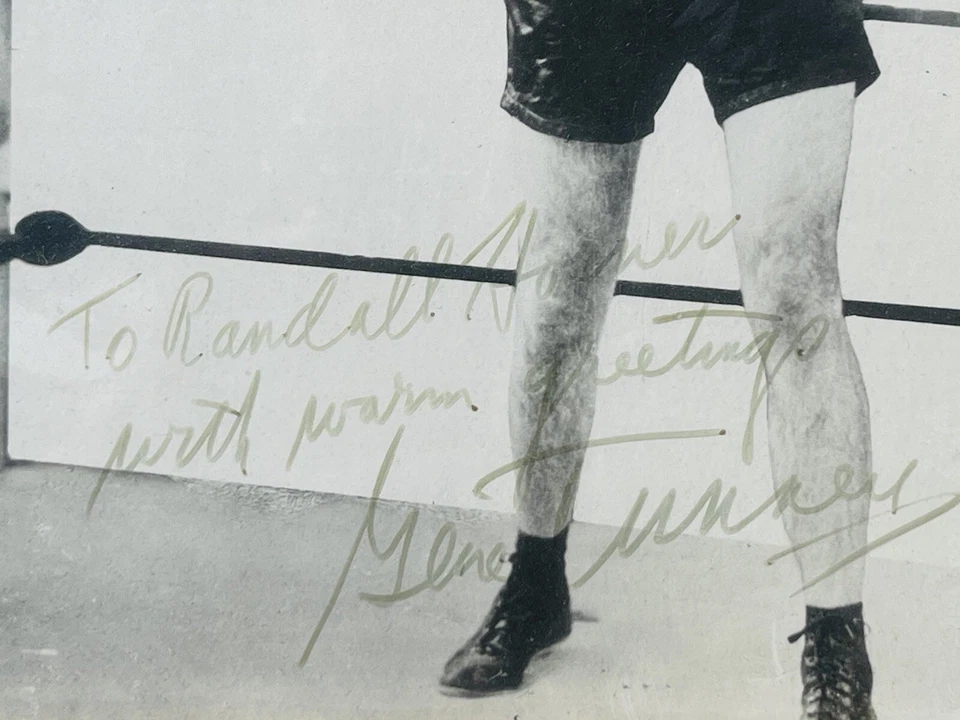 To Randall
with warm greetings
Gene Tunney